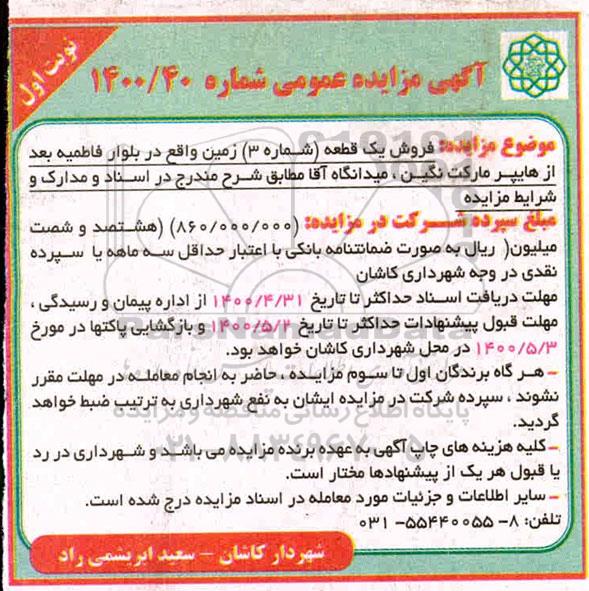 نوبت اول
آگهی مزایده عمومی شماره ۱۴۰۰/۴۰
موضوع مزایده: فروش یک قطعه (شماره ۳) زمین واقع در بلوار فاطمیه بعد
از هایپر مارکت نگین ، میدانگاه آقا مطابق شرح مندرج در اسناد و مدارک و
شرایط مزایده
مبلغ سپرده شرکت در مزایده: (۸۶۰/۰۰۰/۰۰۰) (هشتصد و شصت
میلیون( ریال به صورت ضمانتنامه بانکی با اعتبار حداقل سه ماهه یا سپرده
نقدی در وجه شهرداری کاشان
مهلت دریافت اسناد حداکثر تا تاریخ ۱۴۰۰/۴/۳۱ از اداره پیمان و رسیدگی ،
مهلت قبول پیشنهادات حداکثر تا تاریخ ۱۴۰۰/۵/۲ و بازگشایی پاکتها در مورخ
۱۴۰۰/۵/۳ در محل شهرداری کاشان خواهد بود.
- هر گاه برندگان اول تا سوم مزایده ، حاضر به انجام معامله در مهلت مقرر
نشوند ، سپرده شرکت در مزایده ایشان به نفع شهرداری به ترتیب ضبط خواهد
گردید.
- کلیه هزینه های چاپ آگهی به عهده برنده مزایده می باشد و شهرداری در رد
یا قبول هر یک از پیشنهادها مختار است.
- سایر اطلاعات و جزئیات مورد معامله در اسناد مزایده درج شده است.
تلفن: ۸- ۵۵۴۴۰۰۵۵- ۰۳۱
شهردار کاشان – سعید ابریشمی راد
ParsNamadData
پایگاه اطلاع رسانی مناقصه و مزایده